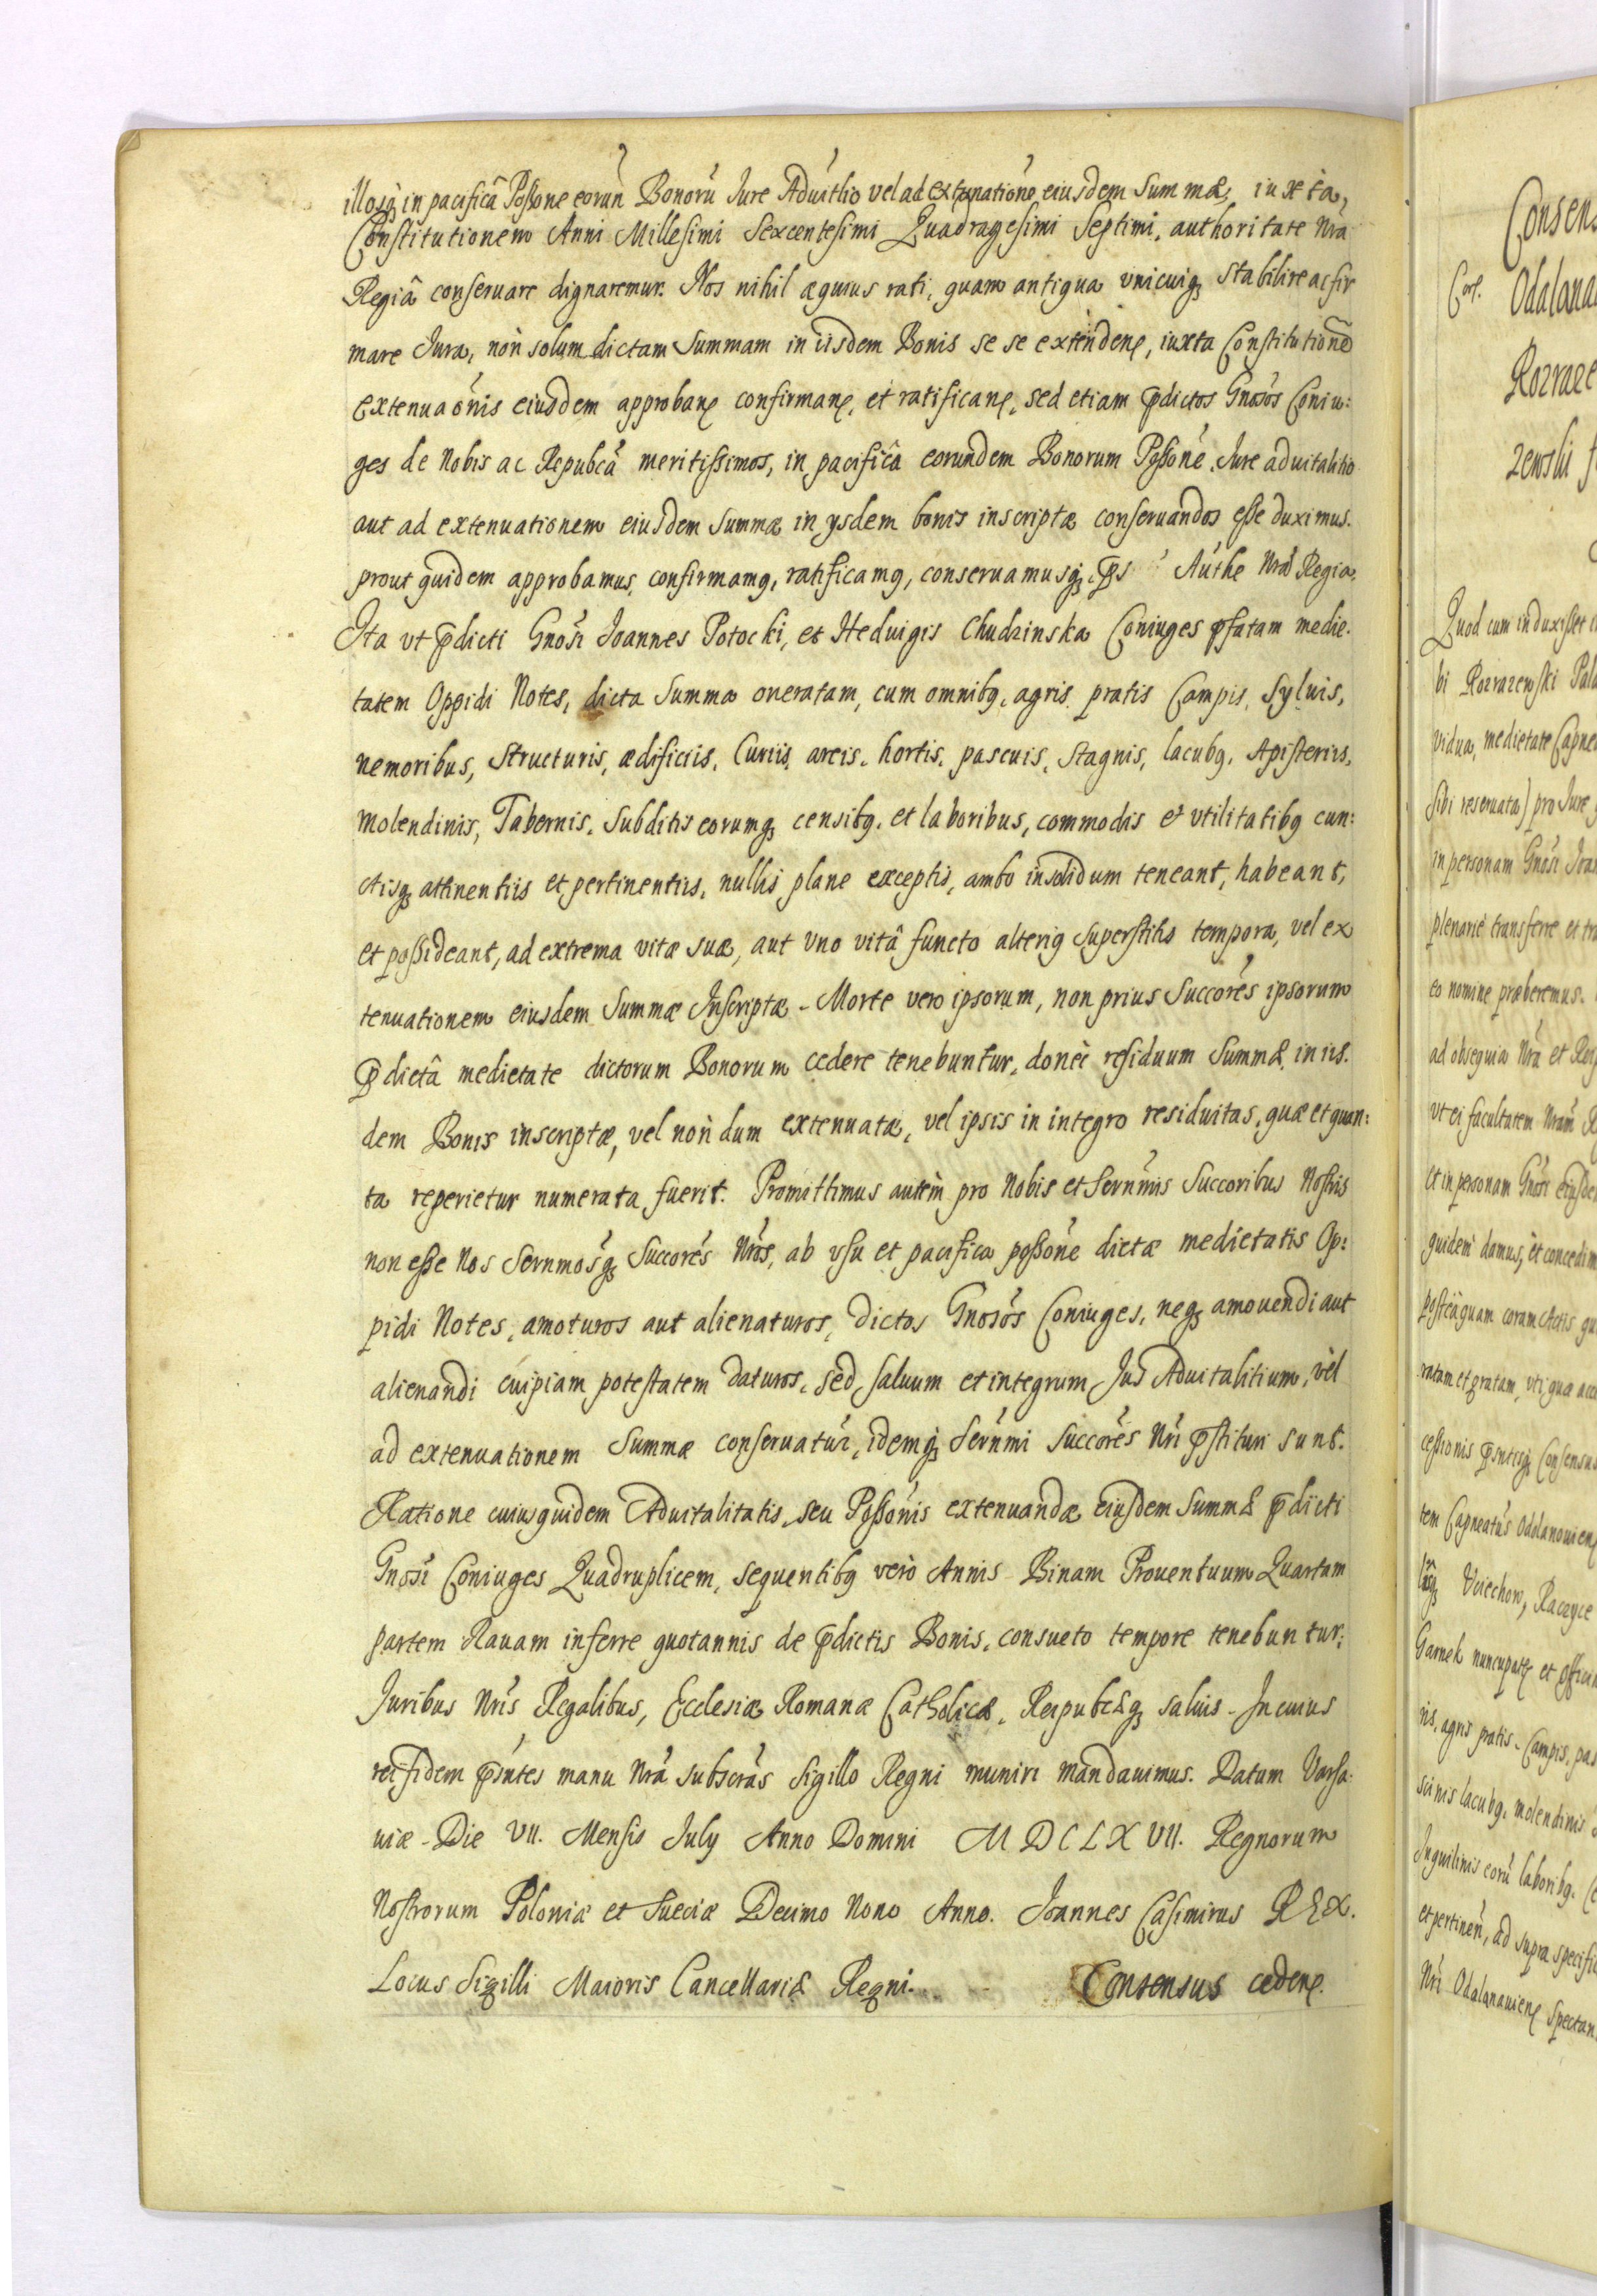 illosq; in pacificâ Possone eorun Bonorũ Jure Aduitlio vel ad extenuatione eiusdem Summæ, iuxta,
Constitutionem Anni Millesimi Sexcentesimi Quadragesimi Septimi, authoritate Nrã
Regiâ conseruare dignaremur. Nos nihil æquius rati, quam antiqua vnicuiq; stabilire ac fir
mare Jura, non solum dictam Summam in iisdem Bonis se se extenden, iuxta Constitutione
extenuaonis eiusdem approban confirman, et ratifican, sed etiam pdictos Gnosos Coniu:
ges de Nobis ac Repubcã meritissimos, in pacificâ eorundem Bonorum Possone, Jure aduitalitio
aut ad extenuationem eiusdem Summæ in ysdem bonis inscriptæ conseruandos esse duximus.
prout quidem approbamus, confirmamq, ratificamq, conseruamusq; pns Authe Nrã Regia.
Ita vt pdicti Gnosi Joannes Potocki, et Heduigis Chudzinska Coniuges pfatam medie-
tatem Oppidi Notes, dicta Summa oneratam, cum omnibq, agris pratis Campis, Syluis,
nemoribus, structuris, ædificiis, Curiis, areis, hortis, pascuis, Stagnis, lacubq, Apisteriis,
molendinis, Tabernis, Subditis eorumq; censibq, et laboribus, commodis et vtilitatibq cun:
ctisq; attinentiis et pertinentiis, nullis plane exceptis, ambo insolidum teneant, habeant,
et possideant, ad extrema vitæ suæ, aut vno vitâ functo alteriq superstitis tempora, vel ex
tenuationem eiusdem Summæ Inscriptæ - Morte vero ipsorum, non prius Succores ipsorum
pdictâ medietate dictorum Bonorum cedere tenebuntur, donec residuum Summæ, in iis.
dem Bonis inscriptæ, vel non dum extenuatæ, vel ipsis in integro residuitas, quæ et quan:
ta reperietur numerata fuerit. Promittimus autem pro Nobis et Sernmis Succoribus Nostris
non esse Nos Sernmosq; Succores Nros, ab vsu et pacifica possone dictæ medietatis Op:
pidi Notes, amoturos aut alienaturos, dictos Gnosos Coniuges, neq; amouendi aut
alienandi cuipiam potestatem daturos, sed saluum et integrum Jus Aduitalitium, vel
ad extenuationem Summæ conseruatur, idemq; Sernmi Succores Nri pstituri sunt.
Ratione cuiusquidem Aduitalitatis, seu Possonis extenuandæ eiusdem Summæ pdicti
Gnosi Coniuges Quadruplicem, sequentibq vero Annis Binam Prouentuum Quartam
partem Rauam inferre quotannis de pdictis Bonis, consueto tempore tenebuntur;
Juribus Nris Regalibus, Ecclesiæ Romanæ Catholicæ, Reipubcæq; saluis - In cuius
rei fidem pntes manu Nrã subscras Sigillo Regni muniri mandauimus. Datum Varsa-
uiæ - Die VII. Mensis July Anno Domini MDCLXVII. Regnorum
Nostrorum Poloniæ et Sueciæ Decimo Nono Anno. Joannes Casimirus REX.
Locus Sigilli Maioris Cancellariæ Regni. Consensus ceden.
Consens
Odalana
Rozraze
zewski
Quod cum induxisset
bi Rozrazewski Pala
vidua, medietate Capne
sibi reseruata) pro Jure
in personam Gnosi Joa
plenarie transferre et tra
eo nomine præberemus.
ad obsequia Nrã et Rei
vt ei facultatem Nram
et in personam Gnosi eiusde
quidem damus, et concedim
posteaquam coram Actis
ratam et gratam, vti quæ
cessionis pntisq; Consensus
tem Capneatus Odolanouien
Vciechow, Raczyce
Garnek nuncupat et
nis, agris pratis, Campis, pas
lacubq, molendinis
Inquilinis eorũ laboribq,
et pertinen, ad supra specific
Nri Odolanauien spectan